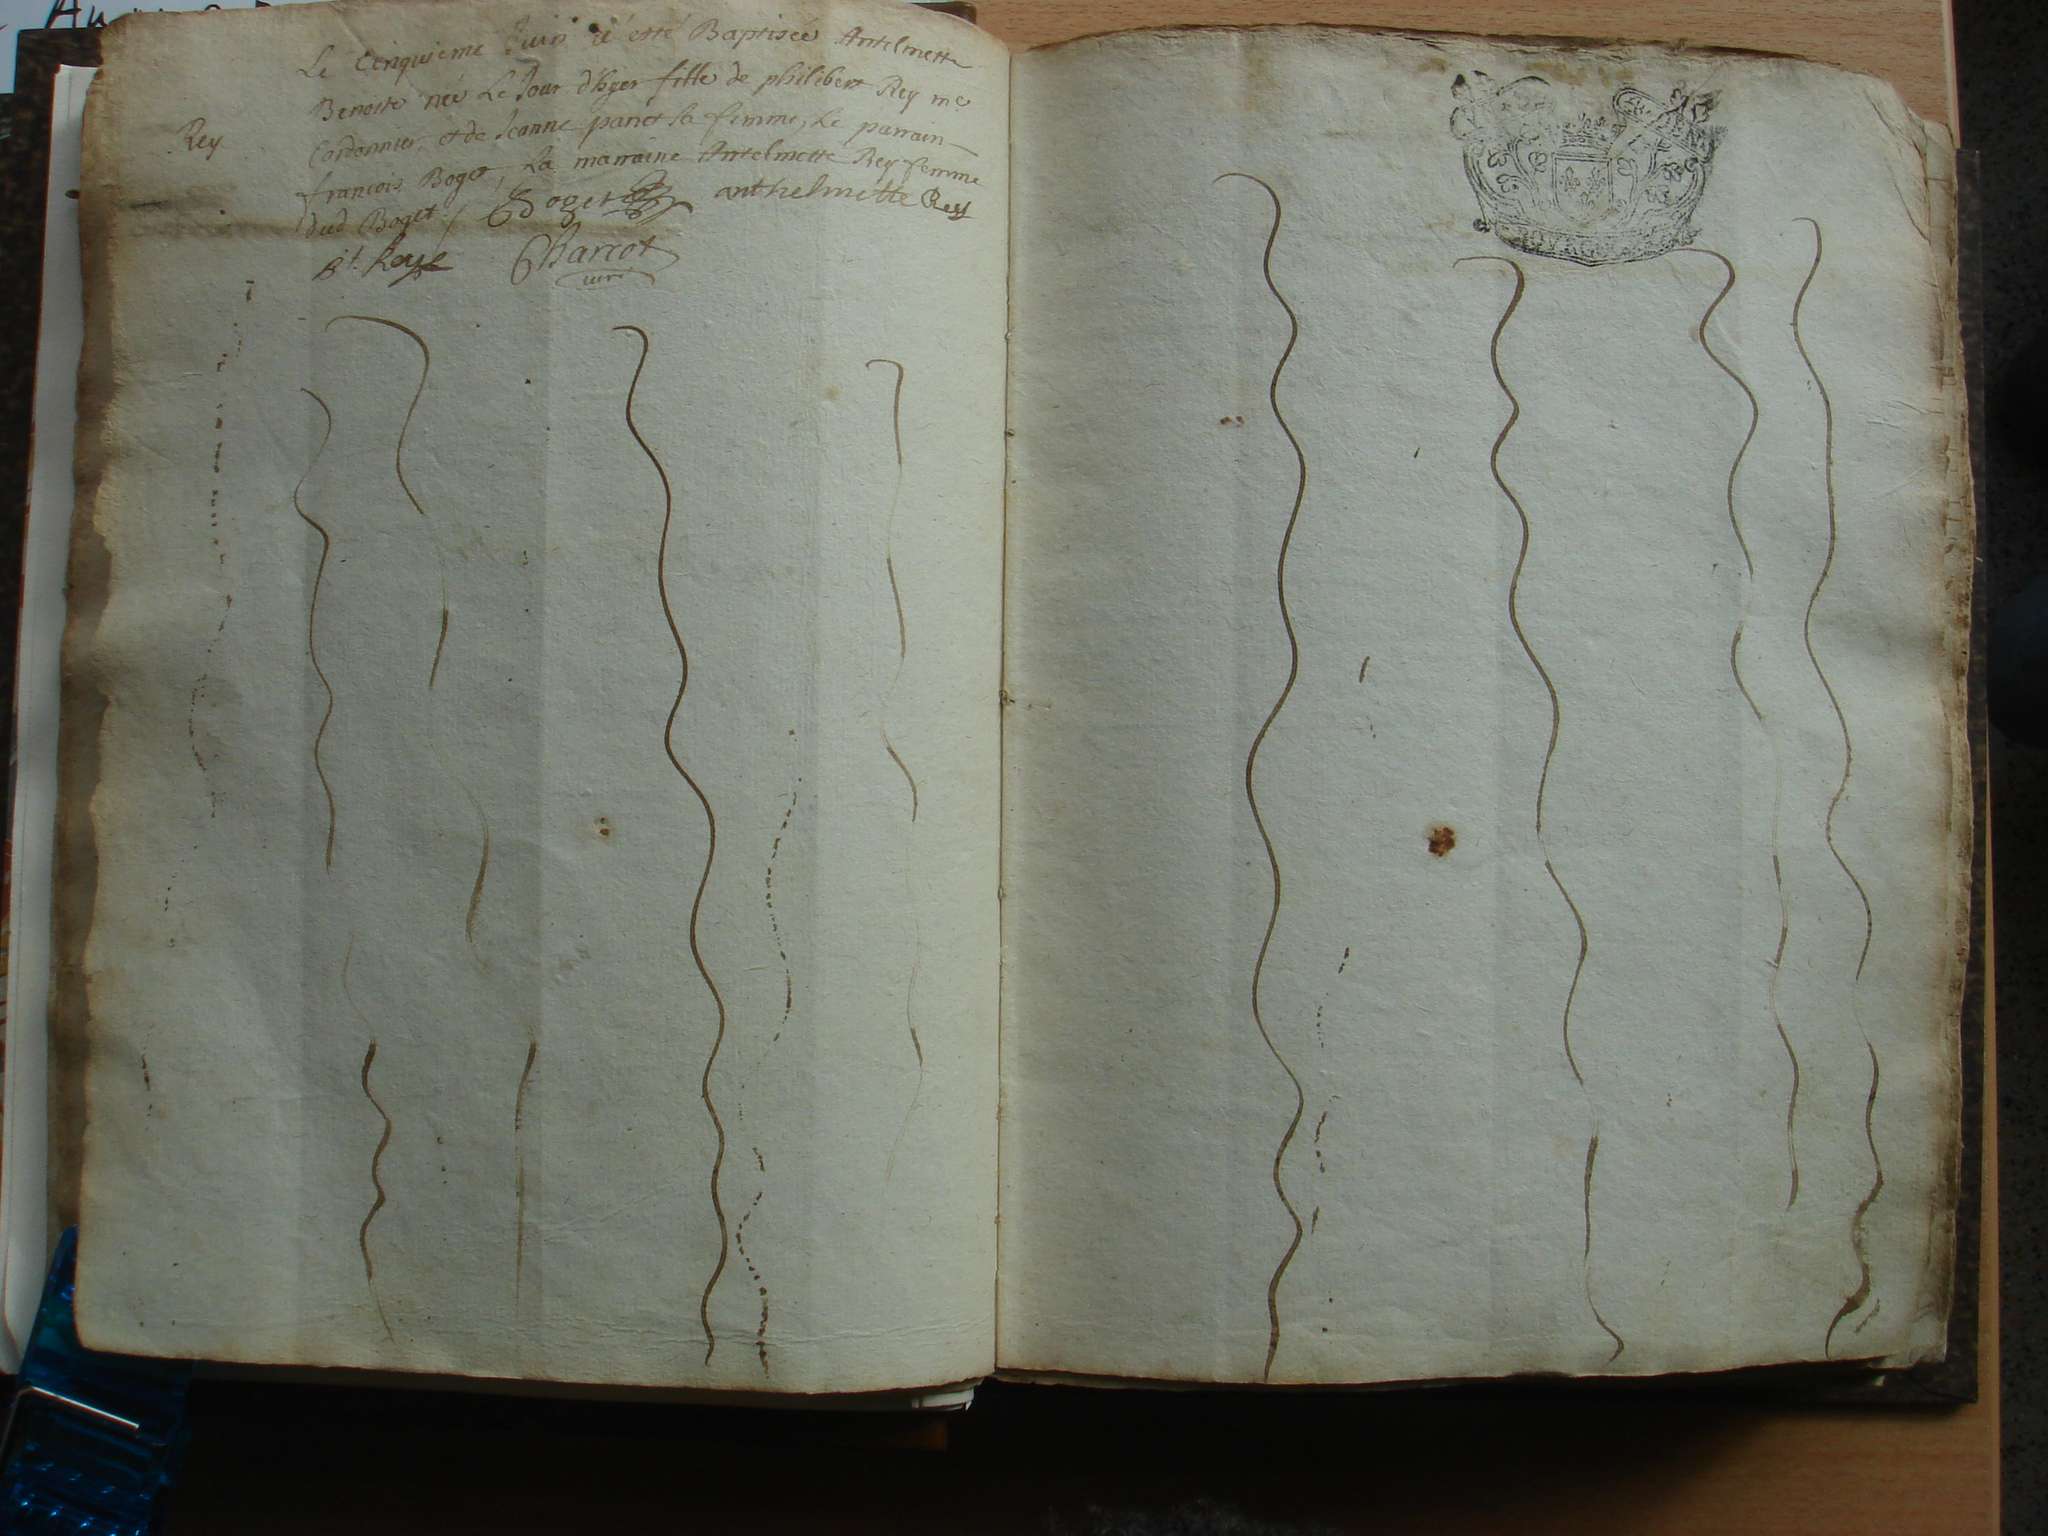 Le Cinquieme Juin a esté Baptisée Antelmette
Benoite née Le Jour d'hyer fille de philibert Rey me
Rey
Cordonnier, et de Jeanne panet sa femme, Le parrain
francois Boget, La marraine Antelmette Rey femme
dud Boget /. Boget anthelmette Rey
Rey Charcot
curé